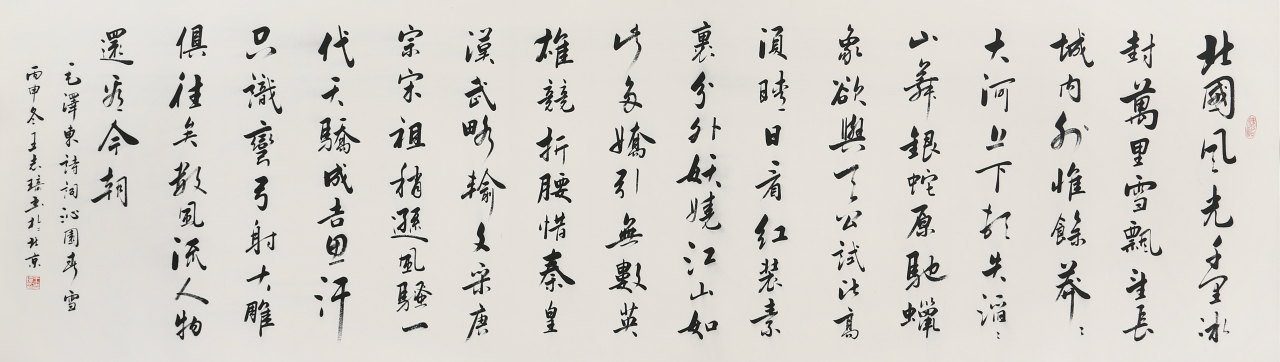 北國风光千里冰
封萬里雪飄望長
城内外惟餘莽〻
大河上下頓失滔〻
山舞銀蛇原馳蠟
象欲與天公試比高
須晴日看紅裝素
裹分外妖嬈江山如
此多嬌引無數英
雄競折腰惜秦皇
漢武略輸文采唐
宗宋祖稍遜風騷一
代天驕成吉思汗
只識彎弓射大雕
俱往矣數風流人物
還看今朝
毛澤東詩詞沁園春 雪
丙申冬王志書於北京